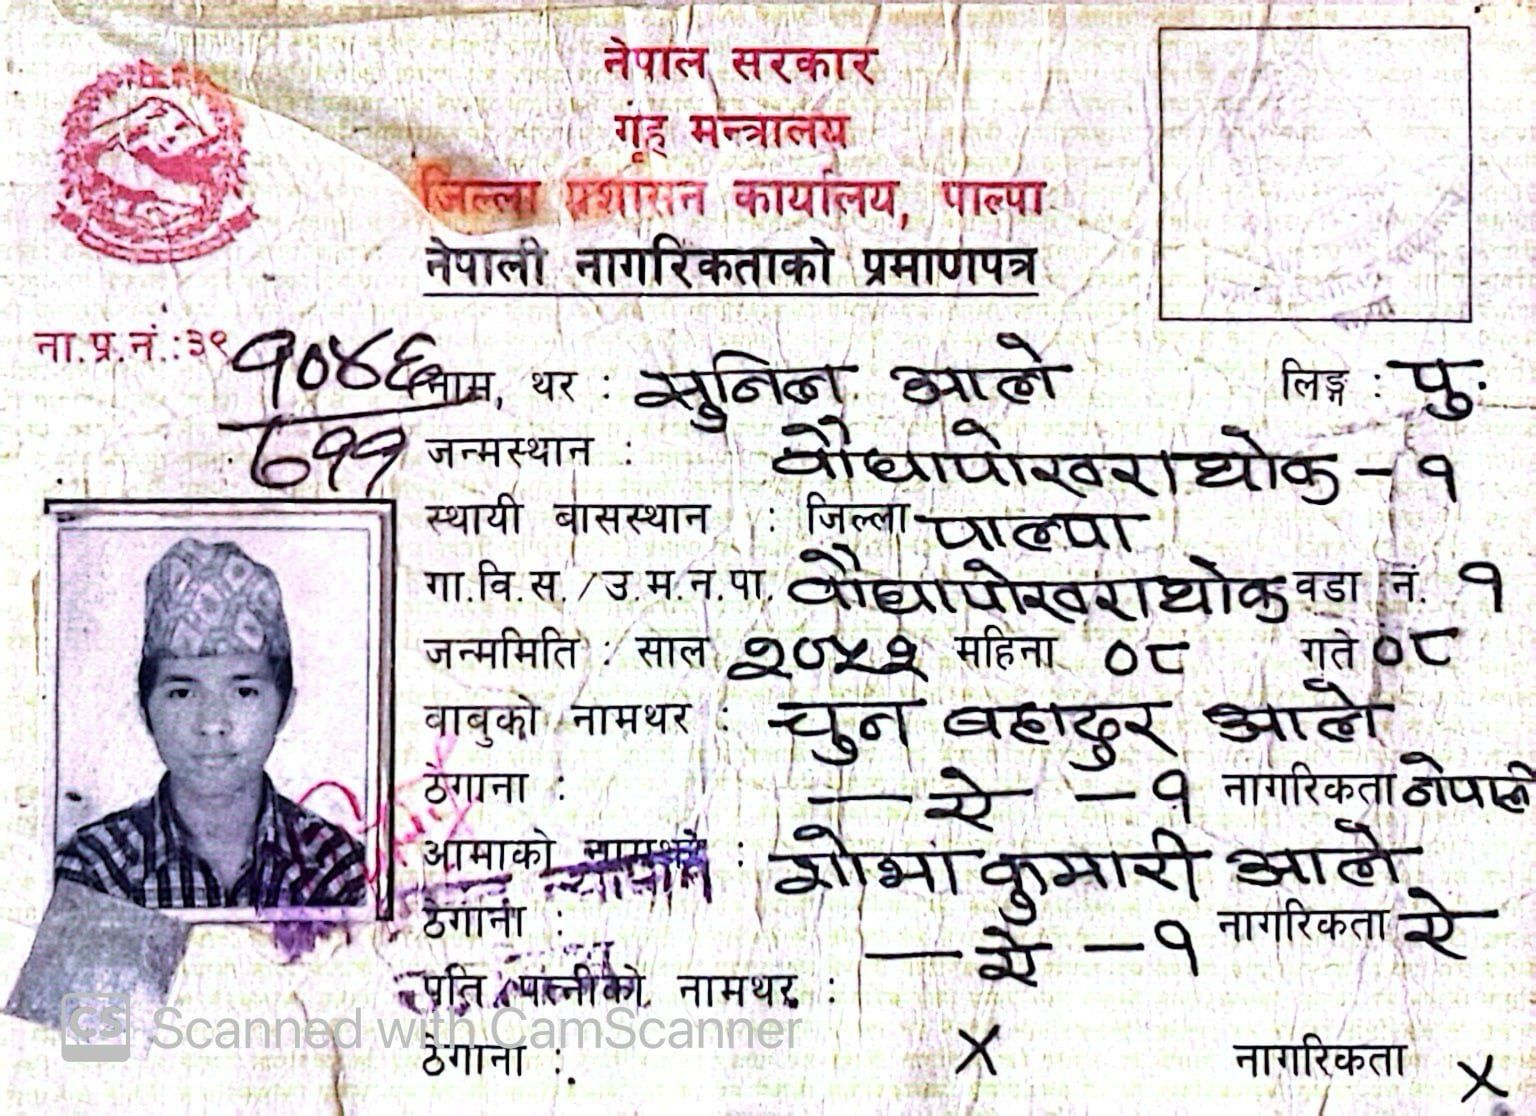 नेपाल सरकार
गृह मन्त्रालय
जिल्ला प्रशासन कार्यालय, पाल्पा
नेपाली नागरिकताको प्रमाणपत्र
ना.प्र.नं.:३९ १०४६
६११
नाम, थर : सुनिल आले लिङ्ग : पु.
जन्मस्थान : बौघापोखराथोक - १
स्थायी बासस्थान : जिल्ला पाल्पा
गा.वि.स./उ.म.न.पा. बौघापोखराथोक वडा नं. १
जन्ममिति : साल २०५२ महिना ०८ गते ०८
वाबुको नामथर : चुन बहादुर आले
ठेगाना : — ऐ — १ नागरिकता नेपाली
आमाको नामथर : शोभा कुमारी आले
ठेगाना : — ऐ — १ नागरिकता ऐ
पति/पत्नीको नामथर :
ठेगाना : x नागरिकता x
CS Scanned with CamScanner